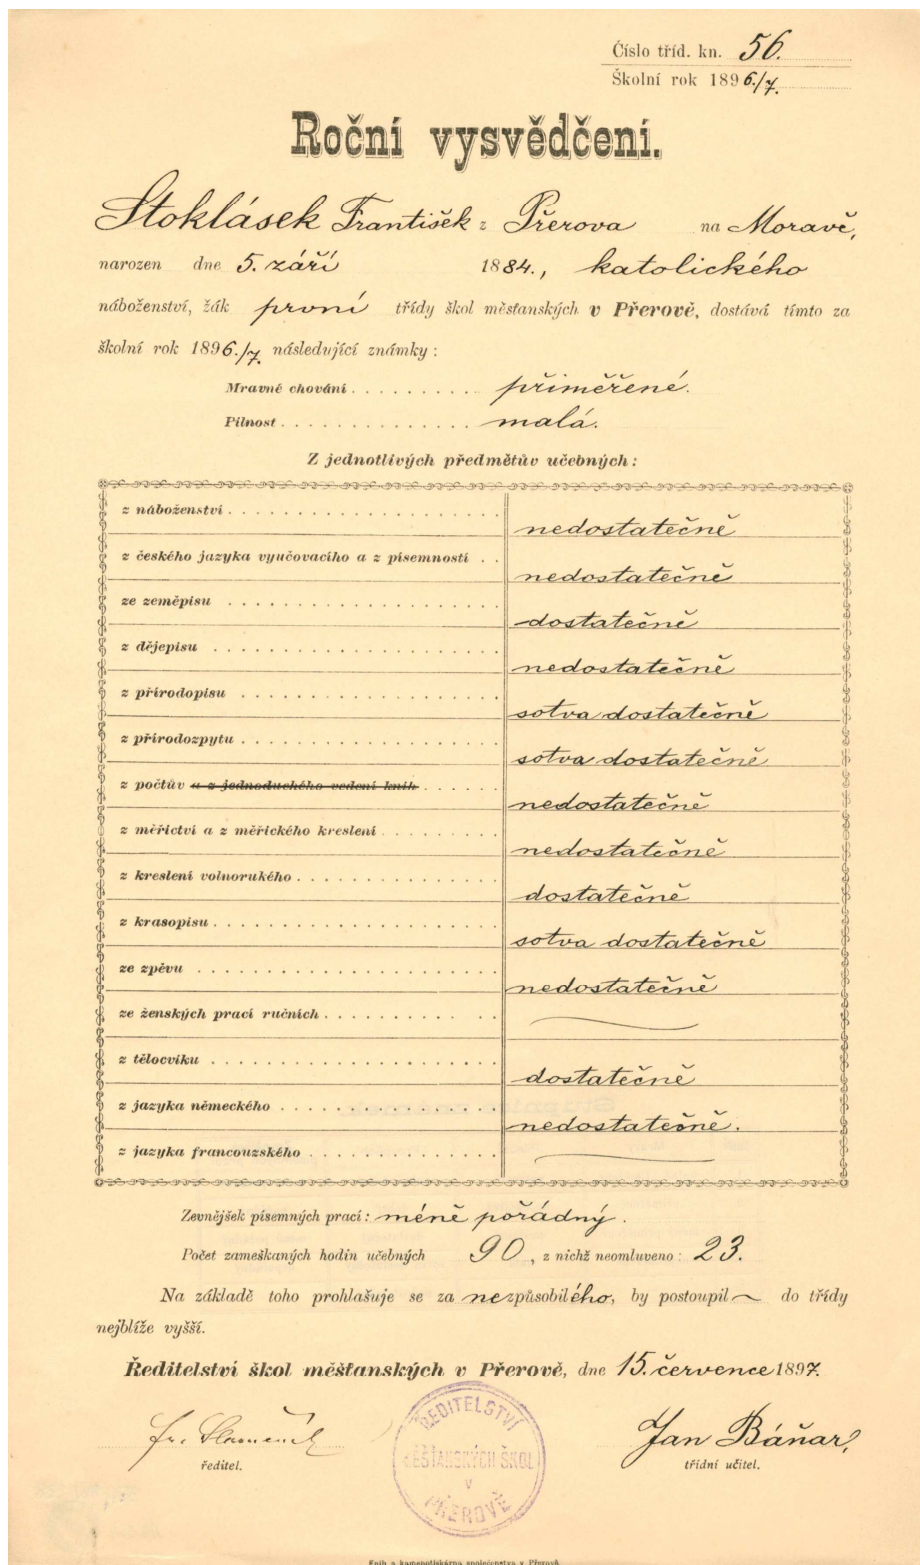 Číslo tříd. kn. 56.
Školní rok 1896./7.
Roční vysvědčení.
Stoklásek František z Přerova na Moravě,
narozen dne 5. září 1884., katolického
náboženství, žák první třídy škol měšťanských v Přerově, dostává tímto za
školní rok 1896./7. následující známky:
Mravné chování . . . . . . . . . . přiměřené.
Pilnost . . . . . . . . . . . . . . malá.
Z jednotlivých předmětův učebných:
z náboženství . . . . . . . . . . . . . . . . . . . . nedostatečně
z českého jazyka vyučovacího a z písemností . . nedostatečně
ze zeměpisu . . . . . . . . . . . . . . . . . . . . dostatečně
z dějepisu . . . . . . . . . . . . . . . . . . . . . nedostatečně
z přírodopisu . . . . . . . . . . . . . . . . . . . sotva dostatečně
z přírodozpytu . . . . . . . . . . . . . . . . . . . sotva dostatečně
z počtův a z jednoduchého vedení knih . . . . . . nedostatečně
z měřictví a z měřického kreslení . . . . . . . . . nedostatečně
z kreslení volnorukého . . . . . . . . . . . . . . . dostatečně
z krasopisu . . . . . . . . . . . . . . . . . . . . . sotva dostatečně
ze zpěvu . . . . . . . . . . . . . . . . . . . . . . nedostatečně
ze ženských prací ručních . . . . . . . . . . . .
z tělocviku . . . . . . . . . . . . . . . . . . . . . dostatečně
z jazyka německého . . . . . . . . . . . . . . . . nedostatečně.
z jazyka francouzského . . . . . . . . . . . . . .
Zevnějšek písemných prací: méně pořádný.
Počet zameškaných hodin učebných 90, z nichž neomluveno: 23.
Na základě toho prohlašuje se za nezpůsobilého, by postoupil do třídy
nejblíže vyšší.
Ředitelství škol měšťanských v Přerově, dne 15. července 1897.
ŘEDITELSTVÍ
MĚŠŤANSKÝCH ŠKOL
V
PŘEROVĚ
Fr.
Jan Báňar,
ředitel.
třídní učitel.
Knih a kamenotiskárna společenstva v Přerově